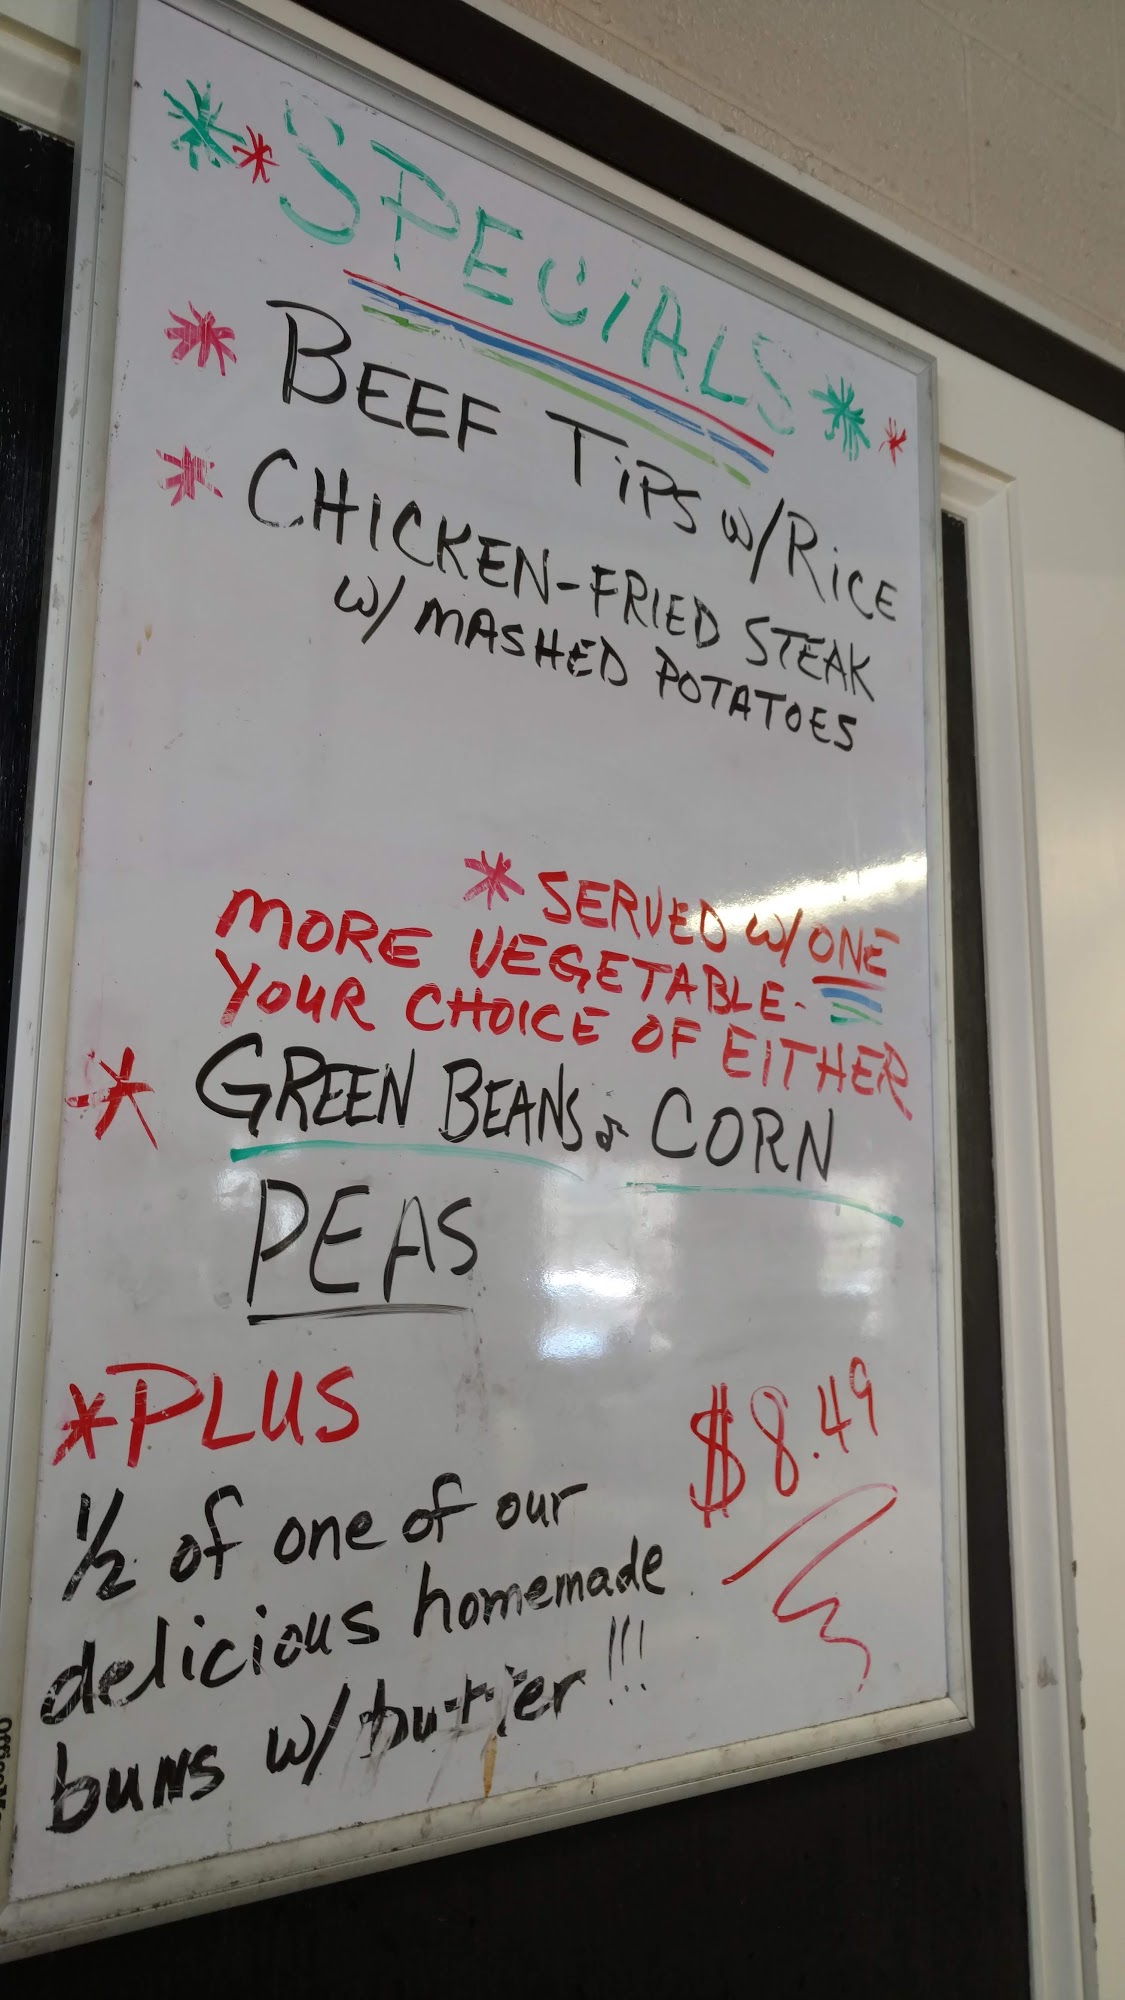 ** SPECiALS **
* BEEF TiPS w/RiCE
* CHICKEN-FRIED STEAK
w/ MASHED POTATOES
* SERVED w/ONE
MORE VEGETABLE-
YOUR CHOICE OF EITHER
* GREEN BEANS & CORN
PEAS
*PLUS
$8.49
1/2 of one of our
delicious homemade
buns w/butter!!!